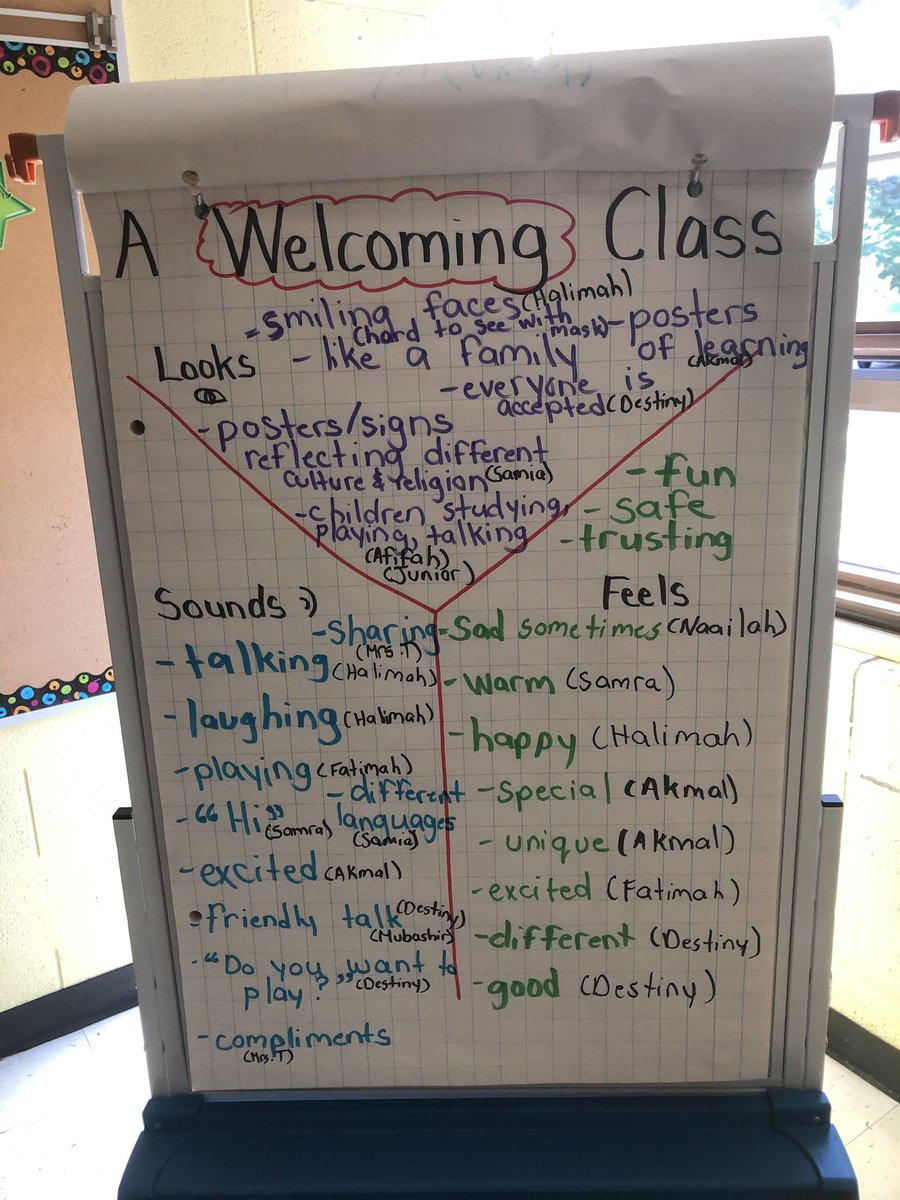 A Welcoming Class
- smiling faces (Halimah)
(hard to see with mask)
- like a family
- posters
of learning
(Akmal)
- everyone is
accepted (Destiny)
Looks
- posters/signs
reflecting different
culture & religion (Samia)
- children studying,
playing, talking
(Afifah)
(Junior)
Sounds
- sharing
(Mrs. T)
- talking (Halimah)
- laughing (Halimah)
- playing (Fatimah)
- different
languages
(Samia)
- "Hi" (Samra)
- excited (Akmal)
- friendly talk (Destiny)
(Mubashir)
- "Do you want to
play?" (Destiny)
- compliments
(Mrs. T)
- fun
- safe
- trusting
Feels
- Sad sometimes (Naailah)
- warm (Samra)
- happy (Halimah)
- special (Akmal)
- unique (Akmal)
- excited (Fatimah)
- different (Destiny)
- good (Destiny)